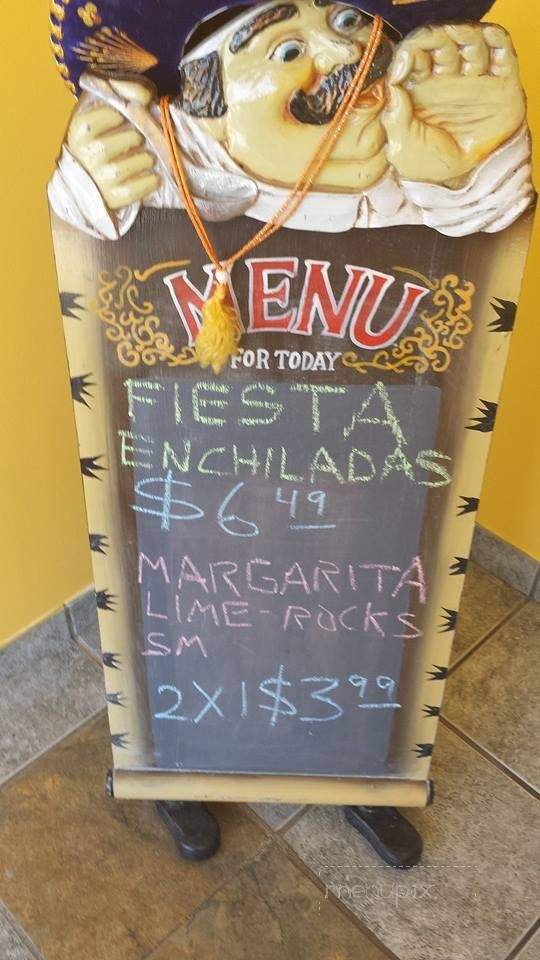 MENU
FOR TODAY
FIESTA
ENCHILADAS
$6 49
MARGARITA
LIME-ROCKS
SM
2X1 $3 99
menupix